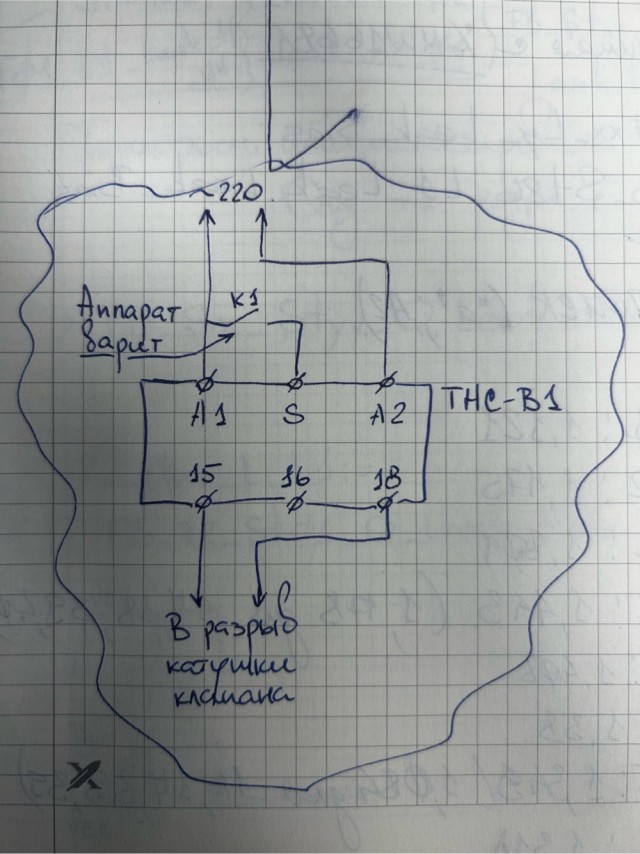 ~220
К1
Аппарат
варит
А1 S А2
ТНС-В1
15 16 18
В разрыв
катушки
клапана